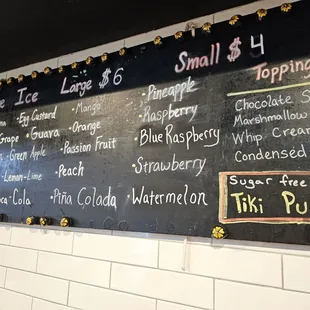 Ice Large $6 Small $4
Egg Custard
Grape
Guava
Green Apple
Lemon-Lime
Mango
Orange
Passion Fruit
Peach
Piña Colada
Pineapple
Raspberry
Blue Raspberry
Strawberry
Watermelon
Topping
Chocolate
Marshmallow
Whip Cream
Condensed
Sugar free
Tiki